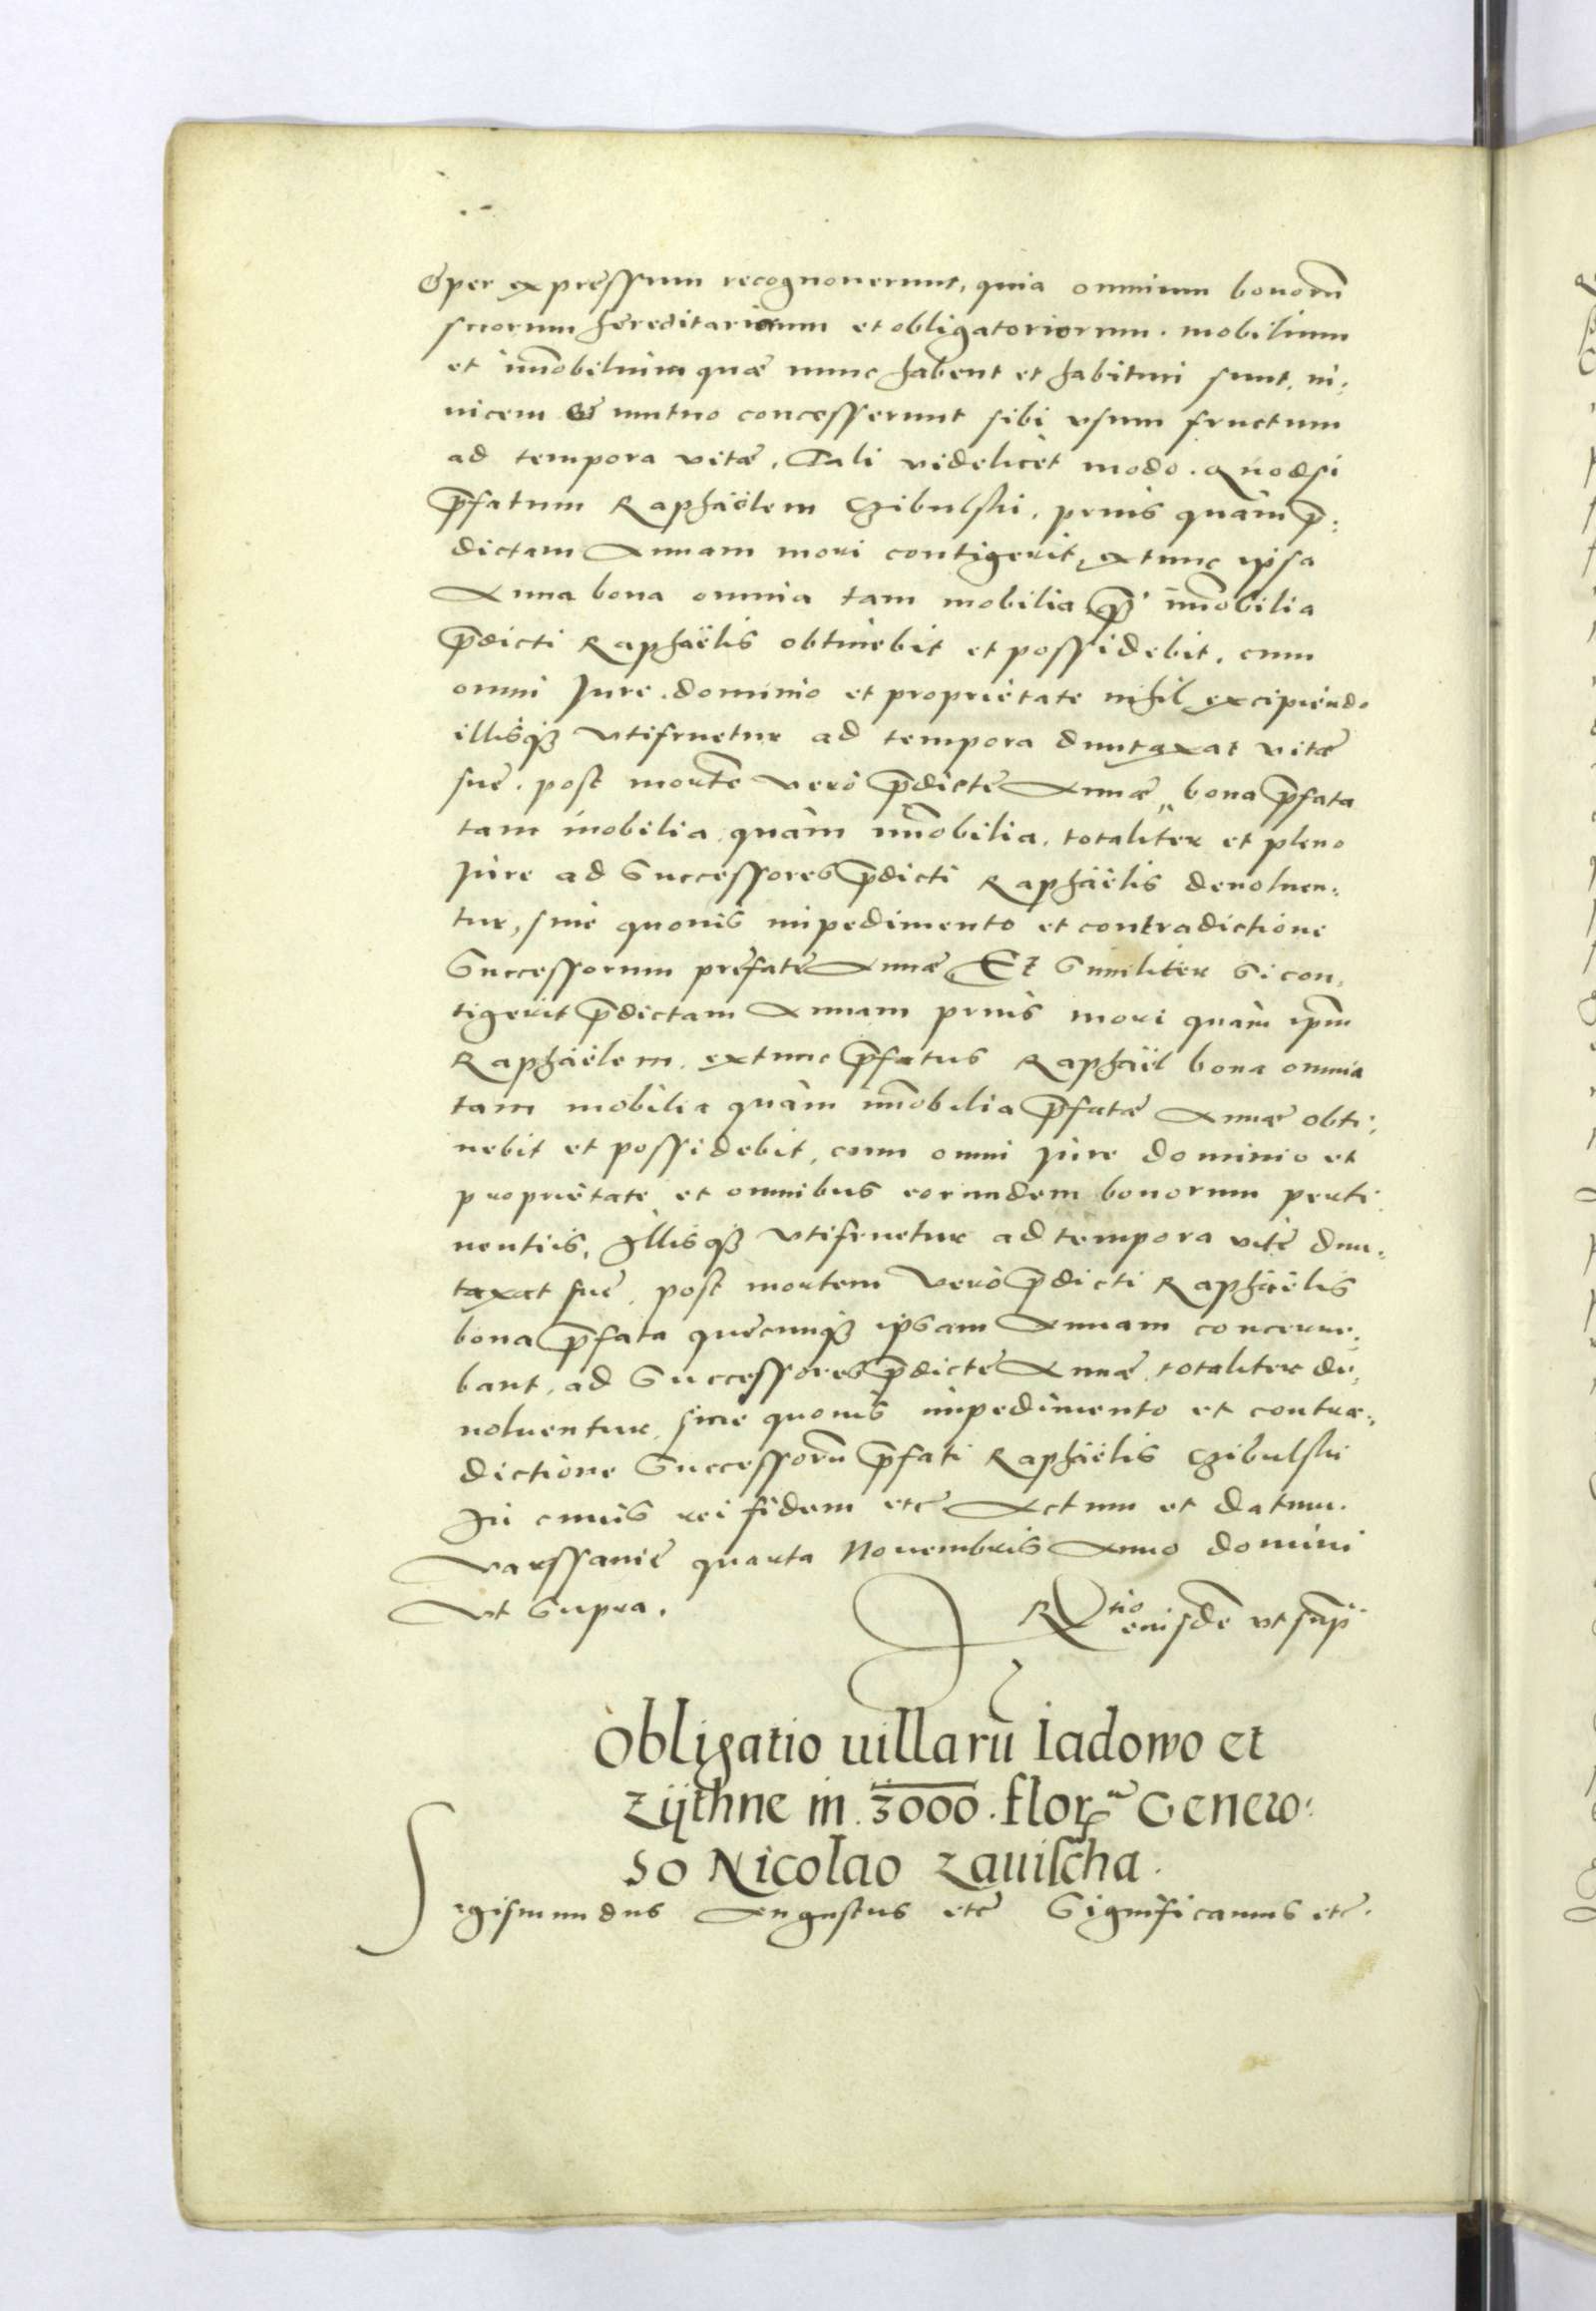 & per expressum recognouerunt, quia omnium bonorũ
suorum hereditariorum et obligatoriorum. mobilium
et im̃obilium quæ nunc habent et habituri sunt, in,
uicem & mutuo concesserunt sibi vsum fructum
ad tempora vitæ, Tali videlicet modo. Quodsi
p̃fatum Raphaëlem Czibulski, prius quàm p̃,
dictam Annam mori contigerit, extunc ipsa
Anna bona omnia tam mobilia q̃ im̃obilia
p̃dicti Raphaëlis obtinebit et possidebit, cum
omni Jure, dominio et proprietate nihil excipiendo
illisq3 vtifruetur ad tempora duntaxat vitæ
suę. post mortẽ verò p̃dictę Annæ, bona p̃fata
tam mobilia quàm im̃obilia, totaliter et pleno
Jure ad Successores p̃dicti Raphaëlis deuoluen,
tur, sine quouis impedimento et contradictione
Successorum prefatę Annæ Et Similiter Si con,
tigerit p̃dictam Annam prius mori quàm ip̃m
Raphaëlem. extunc p̃fatus Raphaël bona omnia
tam mobilia quàm im̃obilia p̃fatæ Annæ obti,
nebit et possidebit, cum omni Jure dominio et
proprietate et omnibus eorundem bonorum perti
nentiis, Illisq3 vtifruetur ad tempora vitę dun,
taxat suę, post mortem verò p̃dicti Raphaëlis
bona p̃fata quecunq3 ipsam Annam concerne,
bant, ad Successores p̃dictę Annæ totaliter de,
uoluentur, sine quouis impedimento et contra,
dictione Successorũ p̃fati Raphaëlis Czibulski
In cuius rei fidem etc̃ Actum et datum.
Varssauię quarta Nouembris Anno domini
Vt Supra.
R̃tio eiusdẽ vt sup̃
Obligatio uillarũ Iadowo et
Zijthne in 3000. flor. Genero,
so Nicolao Zauischa.
Sigismundus Augustus etc̃ Significamus etc̃.